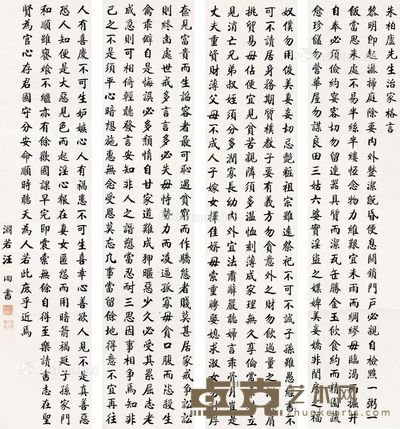 朱柏廬先生治家格言
黎明即起灑掃庭除要內外整潔既昏便息關鎖門戶必親自檢點一粥一
飯當思來處不易半絲半縷恒念物力維艱宜未雨而綢繆毋臨渴而掘井
自奉必須儉約宴客切勿留連器具質而潔瓦缶勝金玉飲食約而精園蔬
愈珍饈勿營華屋勿謀良田三姑六婆實淫盜之媒婢美妾嬌非閨房之福
奴僕勿用俊美妻妾切忌艷粧祖宗雖遠祭祀不可不誠子孫雖愚經書不
可不讀居身務期質樸教子要有義方勿貪意外之財勿飲過量之酒與肩
挑貿易毋佔便宜見貧苦親鄰須多溫恤刻薄成家理無久享倫常乖舛立
見消亡兄弟叔姪須分多潤寡長幼內外宜法肅辭嚴聽婦言乖骨肉豈是
丈夫重資財薄父母不成人子嫁女擇佳婿毋索重聘娶媳求淑女勿計厚
奩見富貴而生諂容者最可恥遇貧窮而作驕態者賤莫甚居家戒爭訟訟
則終凶處世戒多言言多必失毋恃勢力而凌逼孤寡毋貪口腹而恣殺生
禽乖僻自是悔誤必多頹惰自甘家道難成狎暱惡少久必受其累屈志老
成急則可相倚輕聽發言安知非人之譖愬當忍耐三思因事相爭焉知非
己之不是須平心暗想施惠無念受恩莫忘凡事當留餘地得意不宜再往
人有喜慶不可生妬嫉心人有禍患不可生喜幸心善欲人見不是真善惡
恐人知便是大惡見色而起淫心報在妻女匿怨而用暗箭禍延子孫家門
和順雖饔飧不繼亦有餘歡國課早完即囊橐無餘自得至樂讀書志在聖
賢為官心存君國守分安命順時聽天為人若此庶乎近焉
淵若汪洵書